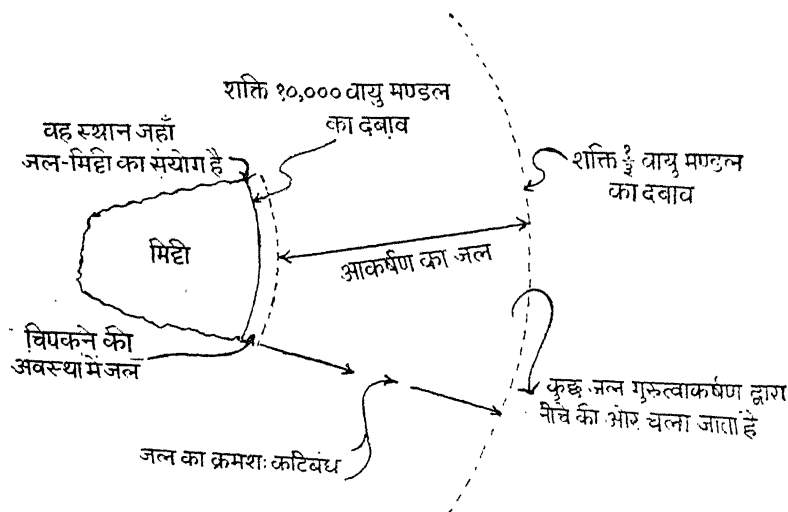 शक्ति १०,००० वायु मण्डल
का दबाव
वह स्थान जहाँ
जल-मिट्टी का संयोग है
शक्ति १/३ वायु मण्डल
का दबाव
मिट्टी
आकर्षण का जल
चिपकने की
अवस्था में जल
कुछ जल गुरुत्वाकर्षण द्वारा
नीचे की ओर चला जाता है
जल का क्रमशः कटिबंध